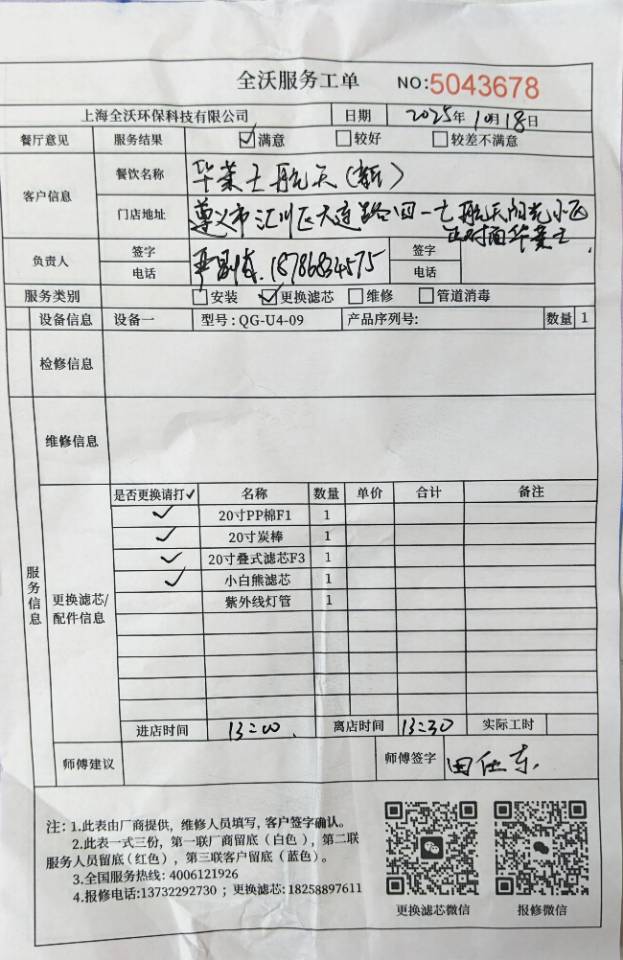 全沃服务工单 NO:5043678
上海全沃环保科技有限公司 日期 2025年10月18日
餐厅意见 服务结果 ☑满意 □较好 □较差不满意
客户信息 餐饮名称 华莱士航天(新)
门店地址 遵义市汇川区大连路四一七航天阳光小区
正对面华莱士
负责人 签字 签字
电话 18786834575 电话
服务类别 □安装 ☑更换滤芯 □维修 □管道消毒
设备信息 设备一 型号:QG-U4-09 产品序列号: 数量 1
检修信息
维修信息
服务信息
更换滤芯/配件信息
是否更换请打✓ 名称 数量 单价 合计 备注
✓ 20寸PP棉F1 1
✓ 20寸炭棒 1
✓ 20寸叠式滤芯F3 1
✓ 小白熊滤芯 1
紫外线灯管 1
进店时间 13:00 离店时间 13:30 实际工时
师傅建议 师傅签字 田仕东
注:1.此表由厂商提供，维修人员填写，客户签字确认。
2.此表一式三份，第一联厂商留底(白色)，第二联
服务人员留底(红色)，第三联客户留底(蓝色)。
3.全国服务热线:4006121926
4.报修电话:13732292730；更换滤芯:18258897611
更换滤芯微信 报修微信